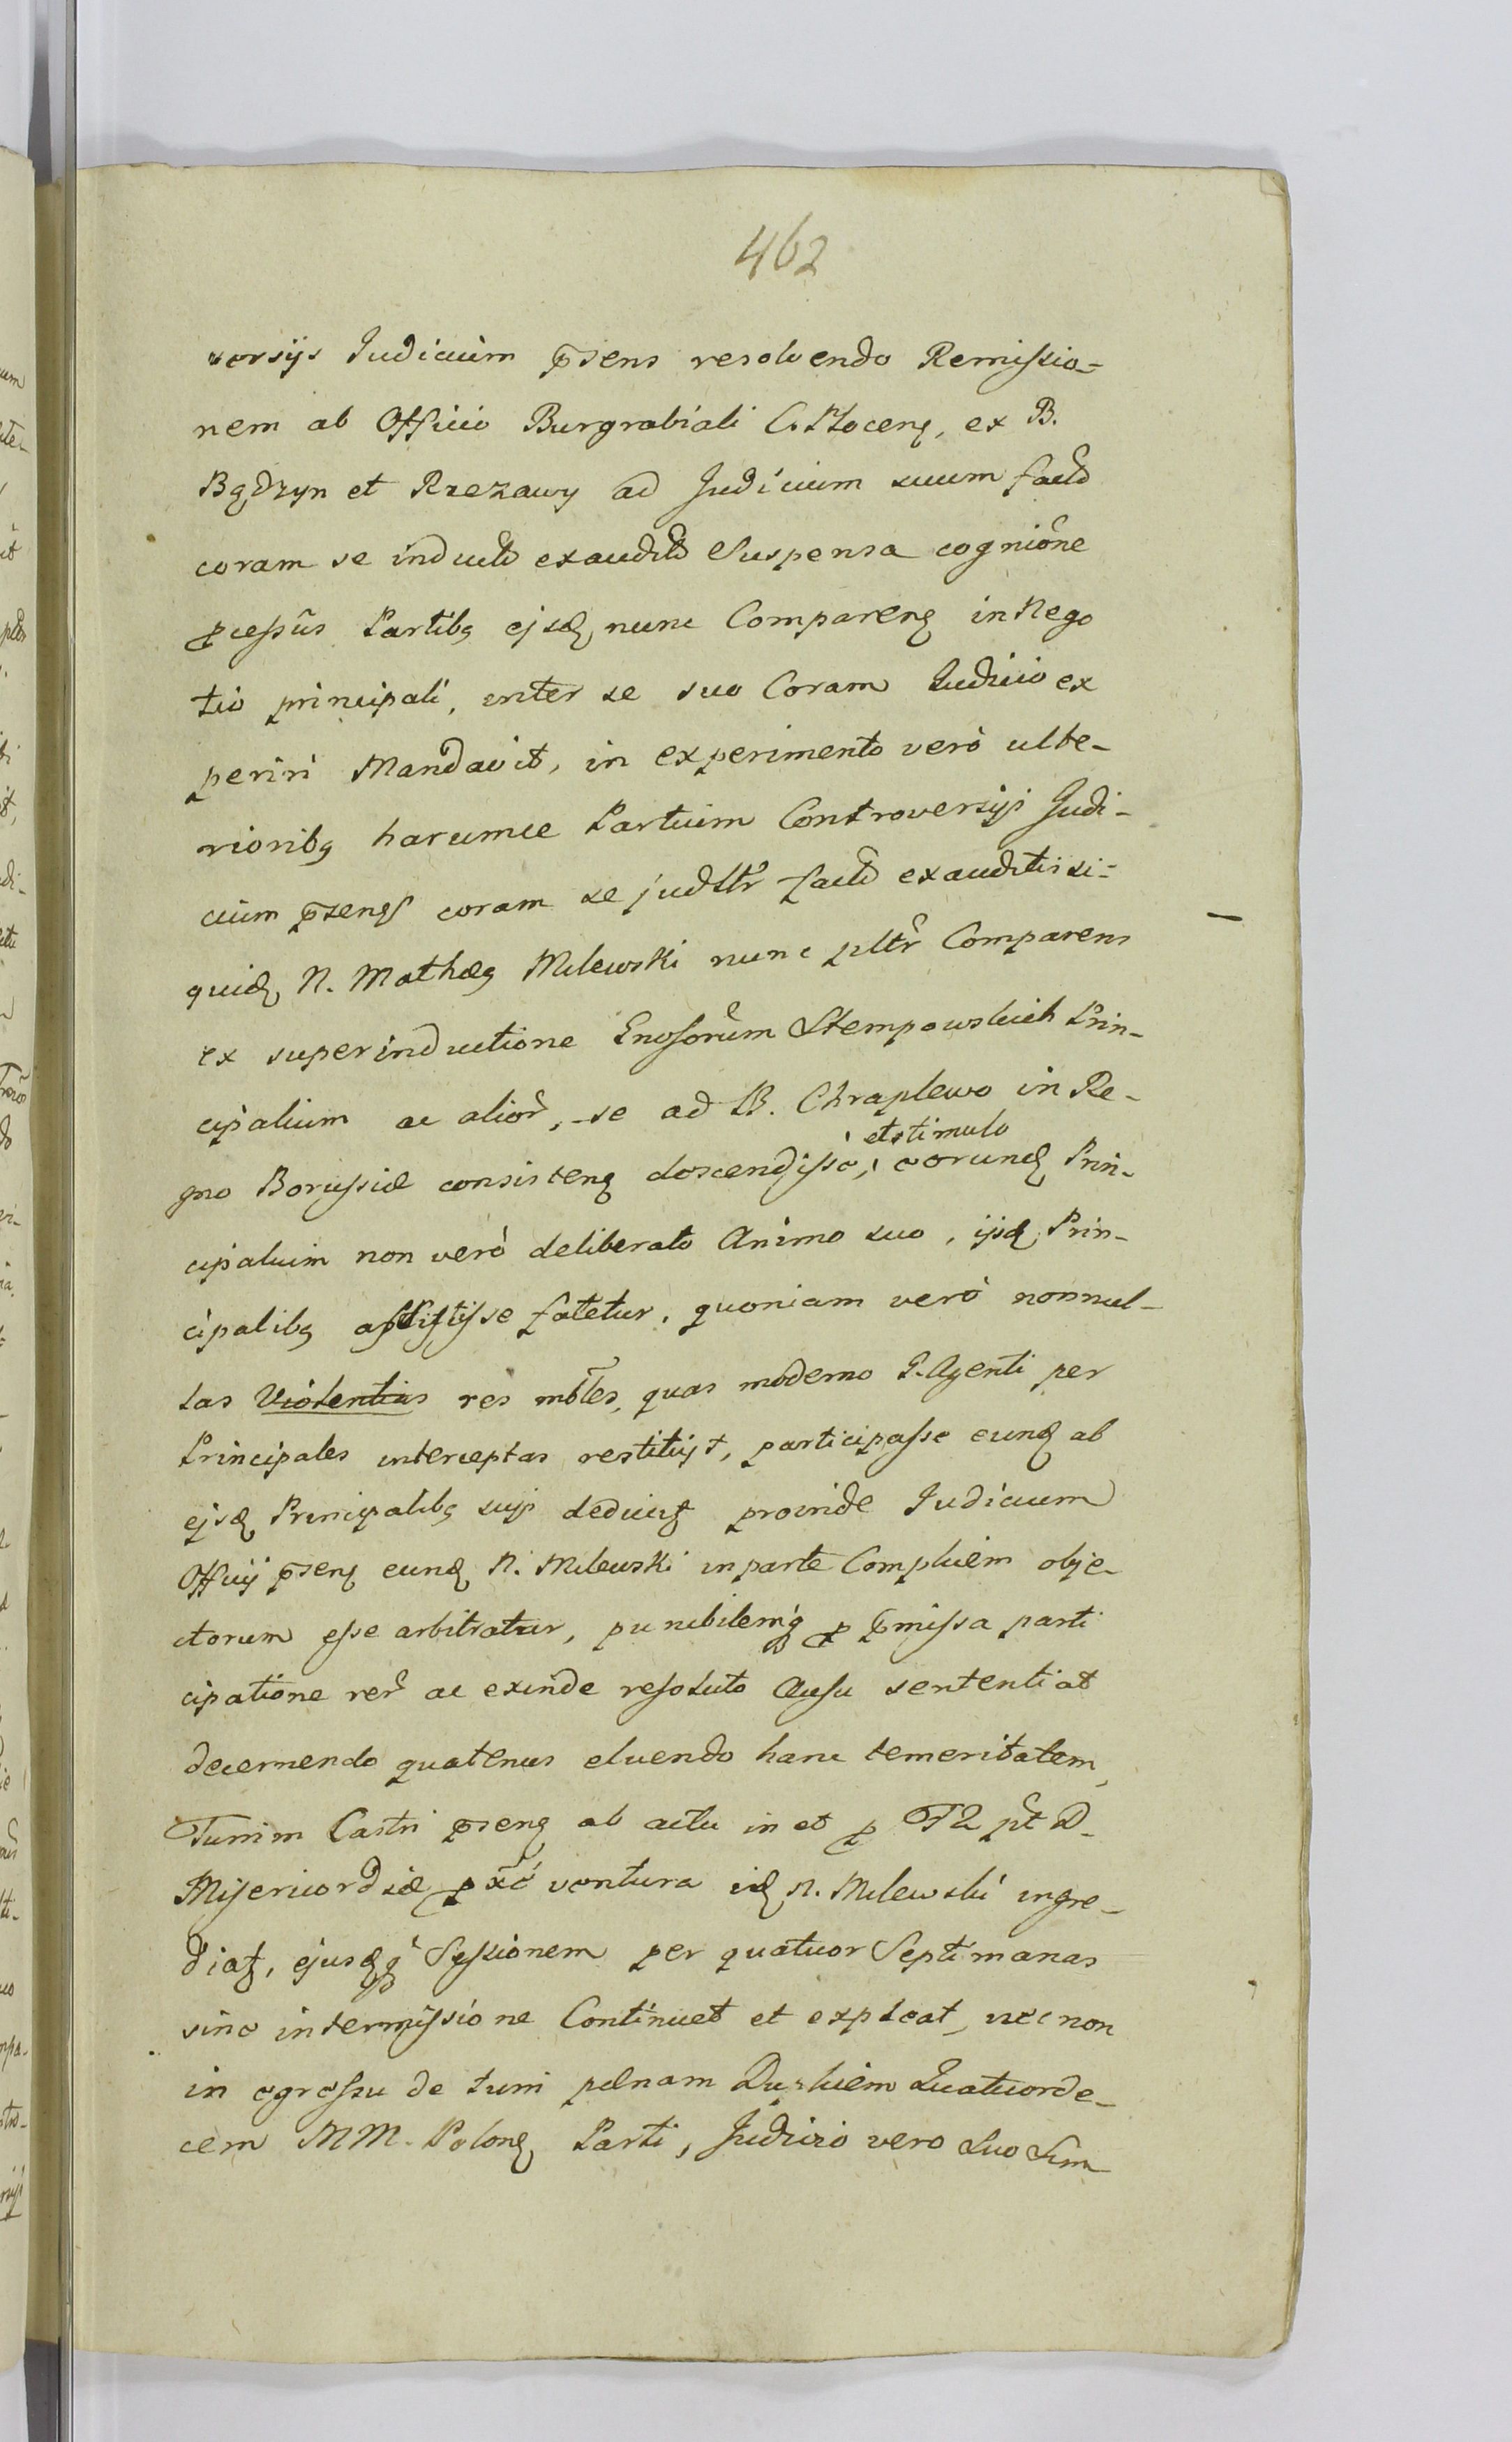 462
versijs Judicium p̄sens resolvendo Remissio-
nem ab Officio Burgrabiali C. Plocenę, ex B.
Bądzyn et Rzezawy ad Judicium suum factã
coram se inductã exauditã Suspensa cogniõne
p̱cessūs Partibꝫ ejsdꝫ nunc Comparenꝫ in Nego
tio principali, inter se suo Coram Judicio ex
periri Mandavit, in experimento verò ulte-
rioribꝫ harumce Partium Controversijs Judi-
cium p̄sens coram se judltr̃ factã exauditis si-
quidꝫ N. Mathęꝫ Milewski nunc pltr̃ Comparens
ex superinductione Gnosorũm Stempowskich Prin-
cipalium ac alior̃, se ad B. Chraplewo in Re-
et stimulo
gno Borussiæ consistenꝫ descendisse, eorundꝫ Prin-
cipalium non verò deliberato Animo suo, ijsdꝫ Prin-
cipalibꝫ astitisse fatetur, quoniam verò nonnul-
las Violentias res mbl̃es, quas moderno P. Agenti per
Principales interceptas restituit, participasse eundꝫ ab
ejsdꝫ Principalibꝫ suis deducitꝫ proinde Judicium
Officij p̄senꝫ eundꝫ N. Milewski in parte Complicem obje-
ctorum esse arbitratur, punibilemqꝫ p̱ p̄missa parti
cipatione rer̃ ac exinde resoluto Ausu sententiat
decernendo quatenus eluendo hanc temeritatem,
Turrim Castri p̄senꝫ ab actu in et p̱ F2 pt̃ D.
Misericordiæ p̱xĩe ventura idꝫ N. Milewski ingre-
diatꝫ, ejusdꝫqꝫ Sessionem per quatuor Septimanas
sine intermissione Continuet et expleat, nec non
in egressu de turri pœnam Duplicem Quatuorde-
cem MM. Polonꝫ Parti, Judicio vero Suo Sim